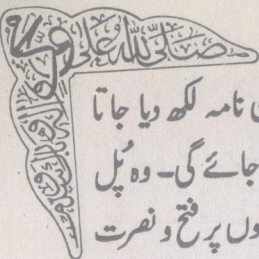 صَلَّى اللهُ عَلٰى
ی نامہ لکھ دیا جاتا
جائے گی۔ وہ پُل
وں پر فتح و نصرت